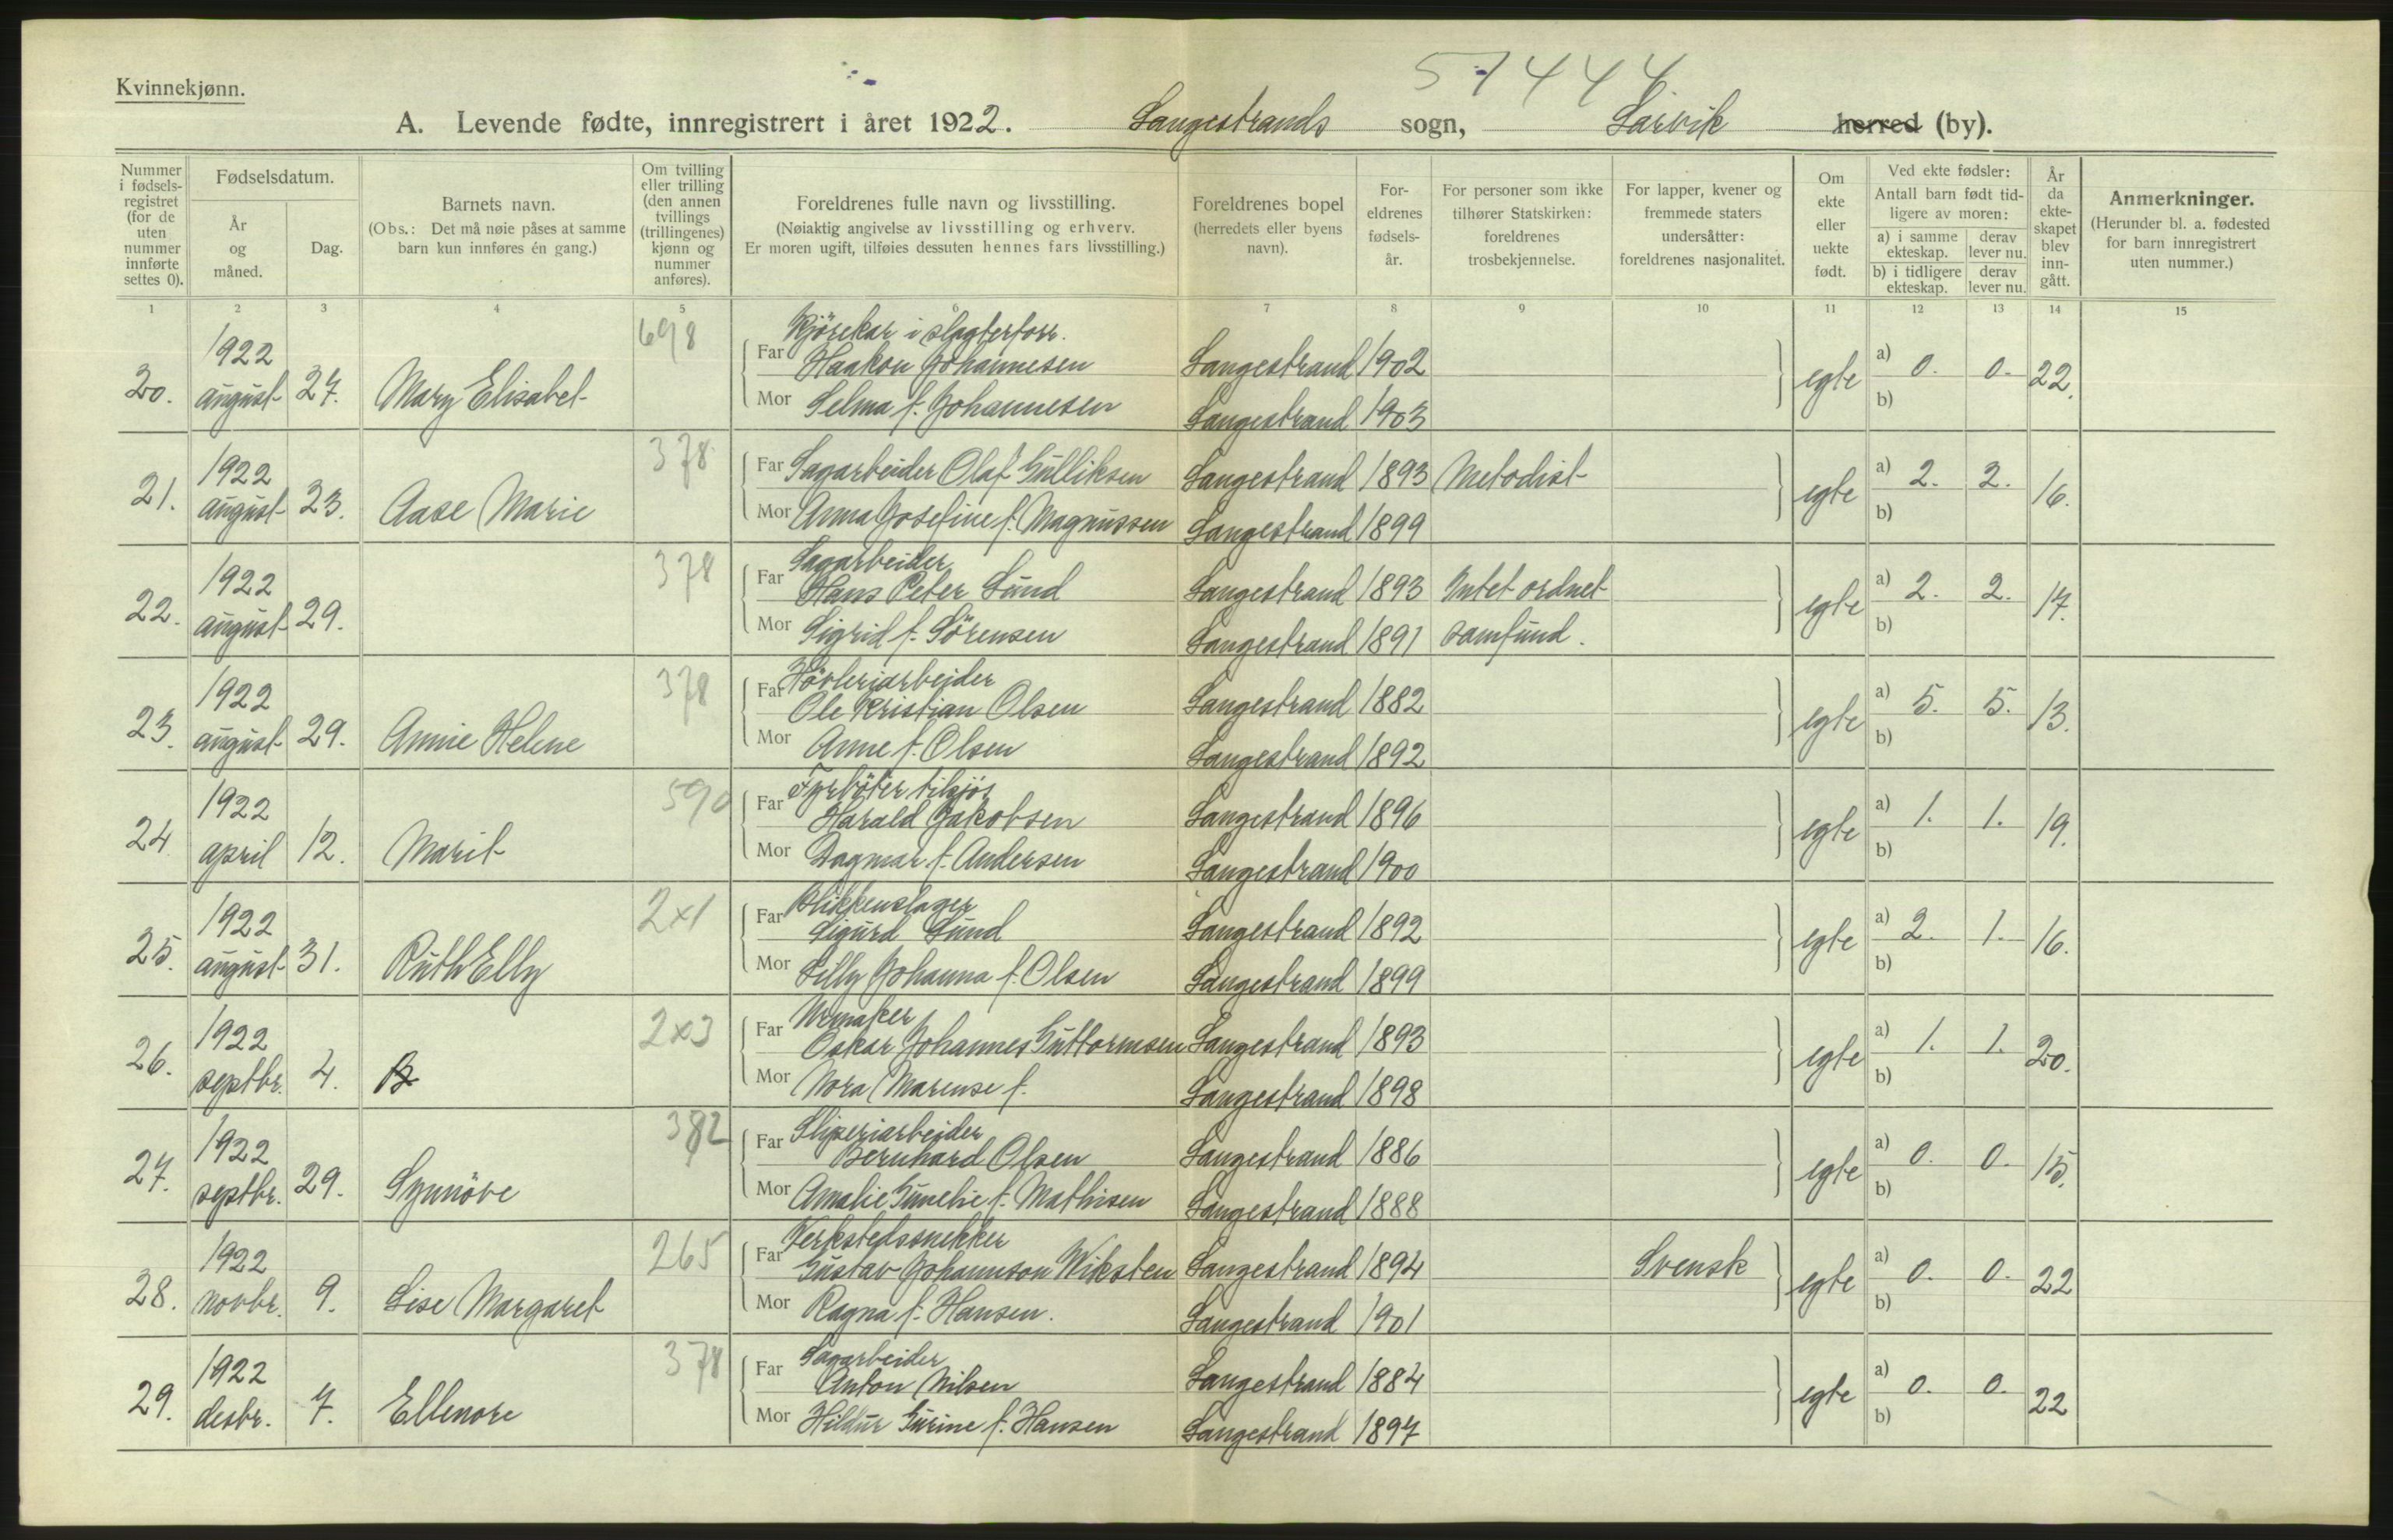 Kvinnekjønn.
51444
A. Levende fødte, innregistrert i året 1922. Langestrands sogn, Larvik herred (by).
Nummer i fødsels-registret (for de uten nummer innførte settes 0).
Fødselsdatum.
År og måned.
Dag.
Barnets navn.
(Obs.: Det må nøie påses at samme barn kun innføres én gang.)
Om tvilling eller trilling (den annen tvillings (trillingenes) kjønn og nummer anføres).
Foreldrenes fulle navn og livsstilling.
(Nøiaktig angivelse av livsstilling og erhverv.
Er moren ugift, tilføies dessuten hennes fars livsstilling.)
Foreldrenes bopel
(herredets eller byens navn).
For-eldrenes fødsels-år.
For personer som ikke tilhører Statskirken: foreldrenes trosbekjennelse.
For lapper, kvener og fremmede staters undersåtter: foreldrenes nasjonalitet.
Om ekte eller uekte født.
Ved ekte fødsler:
Antall barn født tid-ligere av moren:
a) i samme ekteskap.
derav lever nu.
b) i tidligere ekteskap.
derav lever nu.
År da ekte-skapet blev inn-gått.
Anmerkninger.
(Herunder bl. a. fødested for barn innregistrert uten nummer.)
1 2 3 4 5 6 7 8 9 10 11 12 13 14 15
698 Kjörekar i slagterforr.
20. 1922 august 27. Mary Elisabet Far Haakon Johannesen Langestrand 1902 egte a) 0. 0. 22.
Mor Selma f. Johannesen Langestrand 1903 b)
21. 1922 august 23. Aase Marie 378 Far Sagarbeider Olaf Gulliksen Langestrand 1893 Metodist egte a) 2. 2. 16.
Mor Anna Josefine f. Magnussen Langestrand 1899 b)
378 Sagarbeider
22. 1922 august 29. Far Hans Peter Lund Langestrand 1893 Intet ordnet egte a) 2. 2. 17.
Mor Sigrid f. Sörensen Langestrand 1891 samfund. b)
378 Hövleriarbeider
23. 1922 august 29. Annie Helene Far Ole Kristian Olsen Langestrand 1882 egte a) 5. 5. 13.
Mor Anne f. Olsen Langestrand 1892 b)
590 Fyrböter tilsjös
24 1922 april 12. Marit Far Harald Jakobsen Langestrand 1896 egte a) 1. 1. 19.
Mor Dagmar f. Andersen Langestrand 1900 b)
2x1 Blikkenslager
25. 1922 august 31. Ruth Elly Far Sigurd Lund Langestrand 1892 egte a) 2. 1. 16.
Mor Lilly Johanna f. Olsen Langestrand 1899 b)
2x3 Urmaker
26. 1922 septbr. 4. B Far Oskar Johannes Guttormsen Langestrand 1893 egte a) 1. 1. 20.
Mor Nora Marense f. Langestrand 1898 b)
382 Sliperiarbeider
27. 1922 septbr. 29. Synnöve Far Bernhard Olsen Langestrand 1886 egte a) 0. 0. 15.
Mor Amalie Gunelie f. Mathisen Langestrand 1888 b)
265 Verkstedssnekker
28. 1922 novbr. 9. Lise Margaret Far Gustav Johannson Wiksten Langestrand 1894 Svensk egte a) 0. 0. 22
Mor Ragna f. Hansen. Langestrand 1901 b)
378 Sagarbeider
29. 1922 desbr. 7. Ellenore Far Anton Nilsen Langestrand 1884 egte a) 0. 0. 22
Mor Hildur Gurine f. Hansen Langestrand 1897 b)